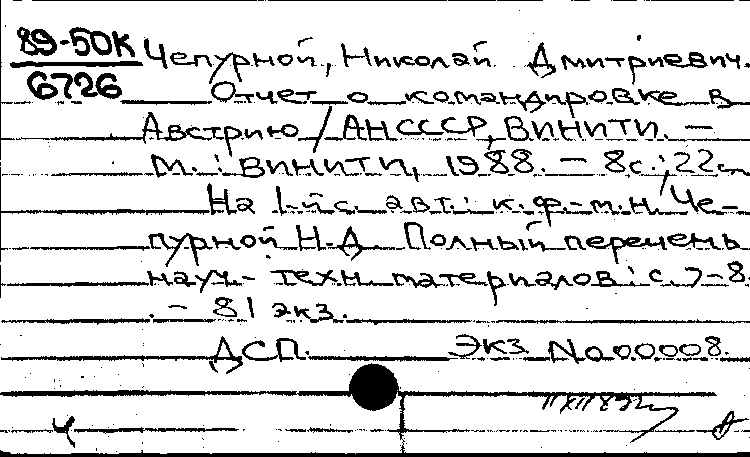 89-50К
6726
Чепурной, Николай Дмитриевич.
Отчет о командировке в
Австрию / АН СССР, ВИНИТИ. —
М.: ВИНИТИ, 1988. — 8с.; 22см
На 1-й с. авт.: к.ф.-м.н. Че-
пурной Н.Д. Полный перечень
науч.-техн. материалов: с. 7-8.
. — 81 экз.
ДСП. Экз. No 00008.
Ч